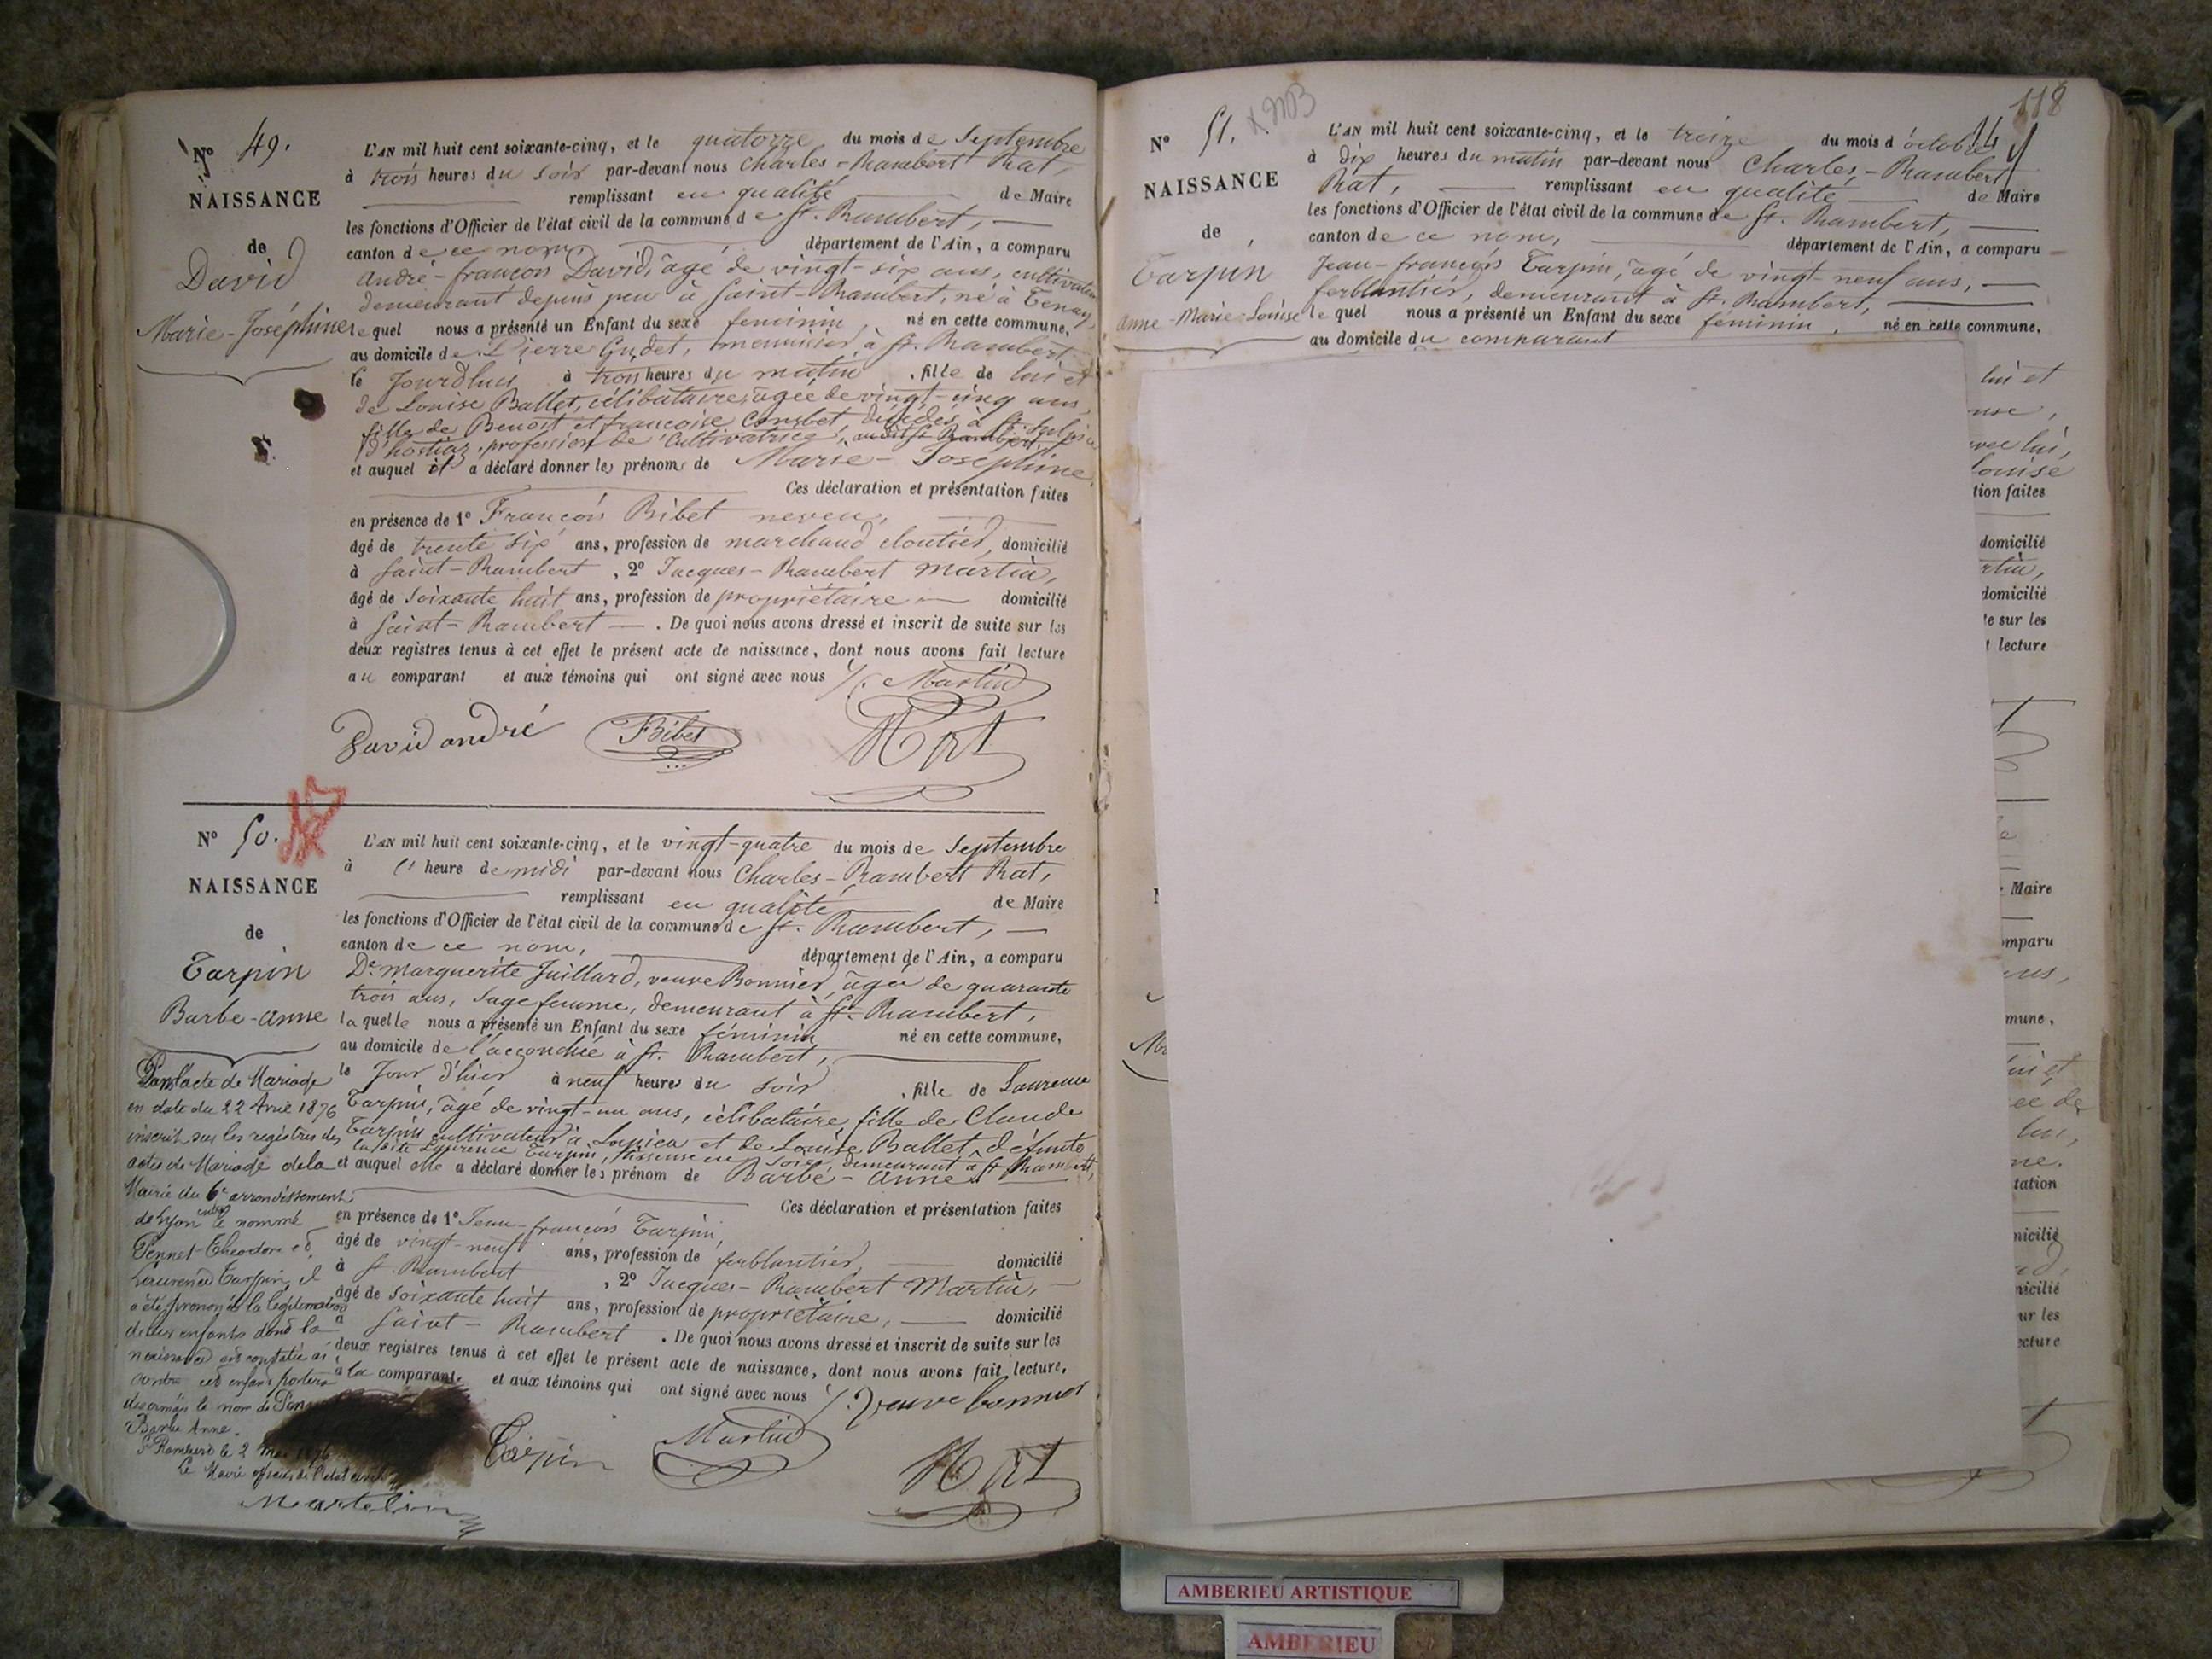 N° 49.
NAISSANCE
de
David
Marie-Joséphine
L'AN mil huit cent soixante-cinq, et le quatorze du mois de Septembre
à trois heures du soir par-devant nous Charles-Rambert Rat,
remplissant en qualité de Maire
les fonctions d'Officier de l'état civil de la commune de St. Rambert,
canton de ce nom, département de l'Ain, a comparu
André-françois David, âgé de vingt-six ans, cultivateur
demeurant depuis peu à Saint-Rambert, né à Tenay,
lequel nous a présenté un Enfant du sexe féminin, né en cette commune,
au domicile de Pierre Gudet, menuisier à St. Rambert
le Jourd'hui à trois heures du matin, fille de lui et
de Louise Ballet, célibataire, âgée de vingt-cinq ans,
fille de Benoit et françoise Constet, décédés à St. Sulpice
d'hostiaz, profession de Cultivatrice, audit St Rambert,
et auquel il a déclaré donner les prénoms de Marie-Joséphine.
Ces déclaration et présentation faites
en présence de 1° François Bibet neveu,
âgé de trente six ans, profession de marchand cloutier, domicilié
à Saint-Rambert, 2° Jacques-Rambert Martin,
âgé de soixante huit ans, profession de propriétaire domicilié
à Saint-Rambert. De quoi nous avons dressé et inscrit de suite sur les
deux registres tenus à cet effet le présent acte de naissance, dont nous avons fait lecture
au comparant et aux témoins qui ont signé avec nous ./. Martin
David andré FBibet Rat
N° 50.
NAISSANCE
de
Tarpin
Barbe-Anne
L'AN mil huit cent soixante-cinq, et le vingt-quatre du mois de Septembre
à l'heure de midi par-devant nous Charles-Rambert Rat,
remplissant en qualité de Maire
les fonctions d'Officier de l'état civil de la commune de St. Rambert,
canton de ce nom, département de l'Ain, a comparu
De. Marguerite Juillard, veuve Bonnier, âgée de quarante
trois ans, Sage femme, demeurant à St. Rambert,
laquelle nous a présenté un Enfant du sexe féminin né en cette commune,
au domicile de l'accouchée à St. Rambert,
le Jour d'hier à neuf heures du soir, fille de Laurence
Tarpin, âgé de vingt-un ans, célibataire, fille de Claude
Tarpin cultivateur à et de Louise Ballet, défunte
la dite Laurence Tarpin, tisseuse en soie, demeurant à St Rambert,
et auquel elle a déclaré donner les prénom de Barbe-Anne.
Ces déclaration et présentation faites
en présence de 1° Jean-françois Tarpin,
âgé de vingt-neuf ans, profession de ferblantier, domicilié
à St. Rambert, 2° Jacques-Rambert Martin,
âgé de soixante huit ans, profession de propriétaire, domicilié
à Saint-Rambert. De quoi nous avons dressé et inscrit de suite sur les
deux registres tenus à cet effet le présent acte de naissance, dont nous avons fait lecture,
à la comparant, et aux témoins qui ont signé avec nous ./. veuve bonnier
Tarpin Martin Rat
Dans l'acte de Mariage
en date du 22 Avril 1876
inscrit sur les registres des
actes de Mariage de la
Mairie du 6e arrondissement
de Lyon entre le nommé
Pennet Théodore et
Laurence Tarpin, il
a été prononcé la légitimation
de deux enfants dont la
naissance est constatée ci
contre cet enfant portera
désormais le nom de
Barbe Anne.
St Rambert le 2 Mai 1876
Le Maire officier de l'état civil
Martelin
118
N° 51.
NAISSANCE
de
Tarpin
Anne-Marie-Louise
L'AN mil huit cent soixante-cinq, et le treize du mois d'octobre
à dix heures du matin par-devant nous Charles-Rambert
Rat, remplissant en qualité de Maire
les fonctions d'Officier de l'état civil de la commune de St. Rambert,
canton de ce nom, département de l'Ain, a comparu
Jean-françois Tarpin, âgé de vingt-neuf ans,
ferblantier, demeurant à St. Rambert,
lequel nous a présenté un Enfant du sexe féminin, né en cette commune.
au domicile du comparant
lui et
avec lui,
Louise
tion faites
domicilié
rtin,
domicilié
te sur les
lecture
Maire
omparu
mune,
lui et
ée de
lui,
tation
micilié
micilié
ur les
ecture
AMBERIEU ARTISTIQUE
AMBERIEU